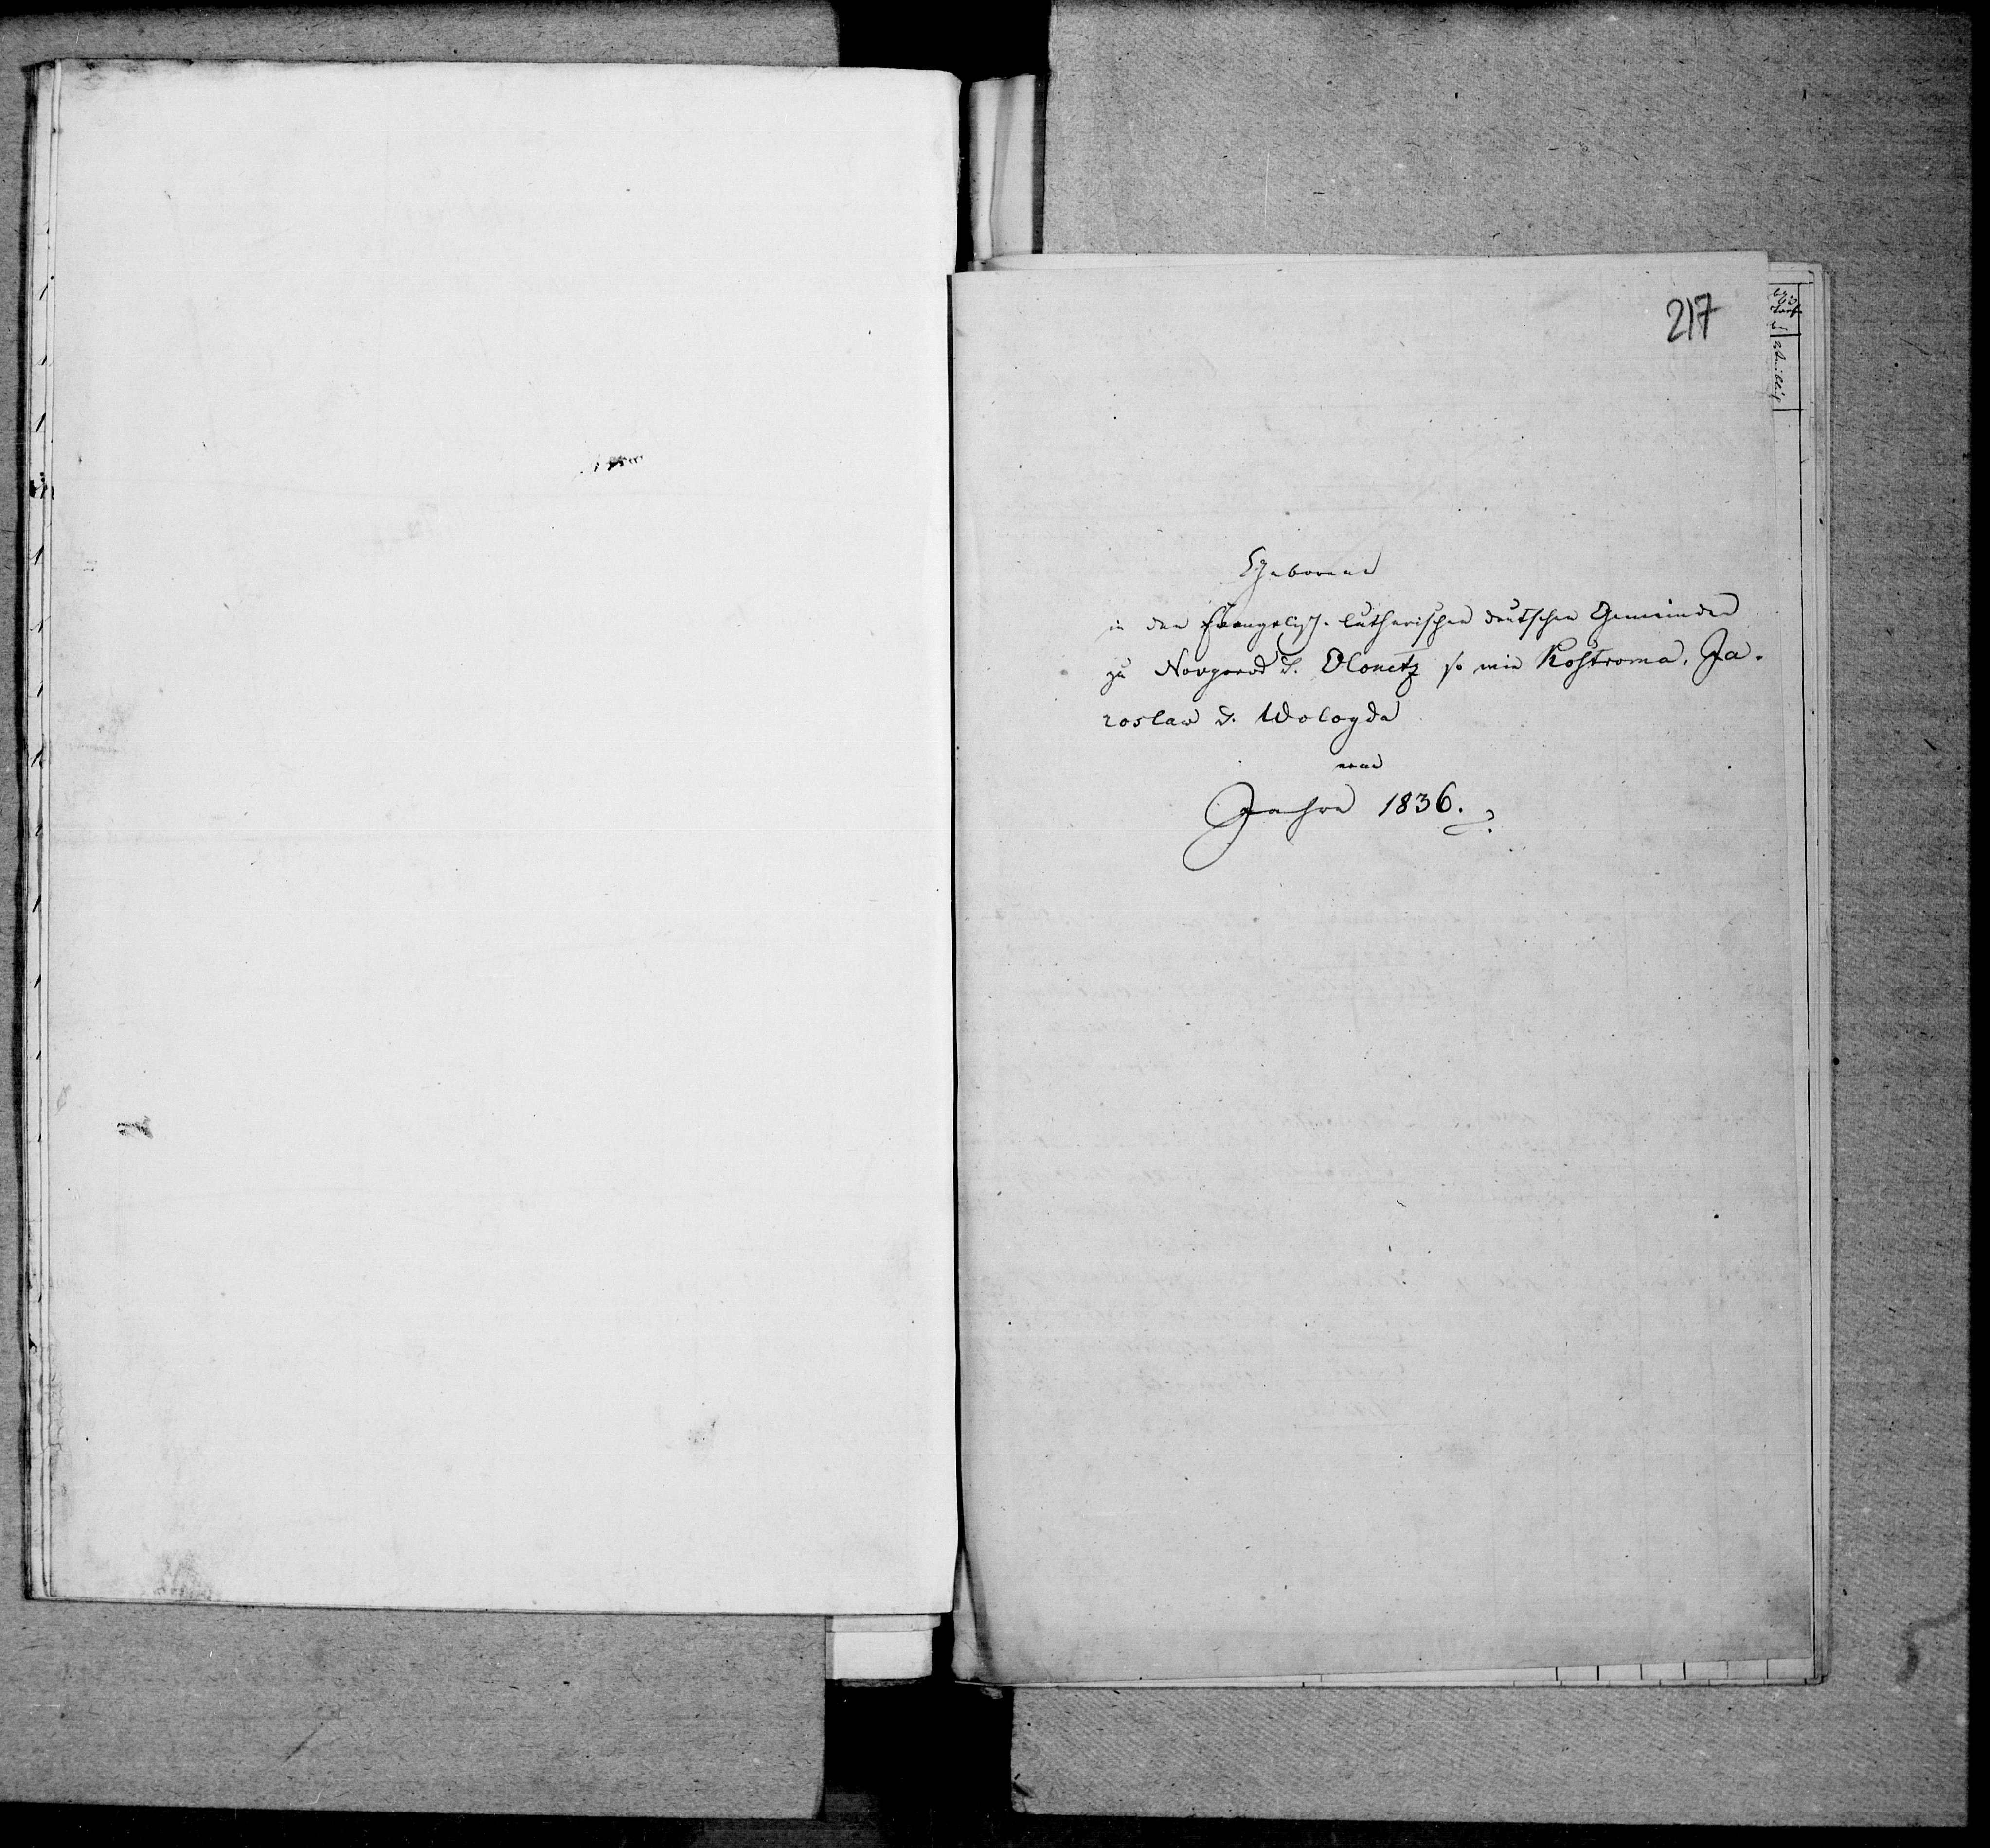 217
Geborene
in den Evangelisch-lutherischen deutschen Gemeinden
zu Novgorod u. Olonetz so wie Kostroma, Ja-
roslaw u. Wologda
vom
Jahre 1836.
weiblich